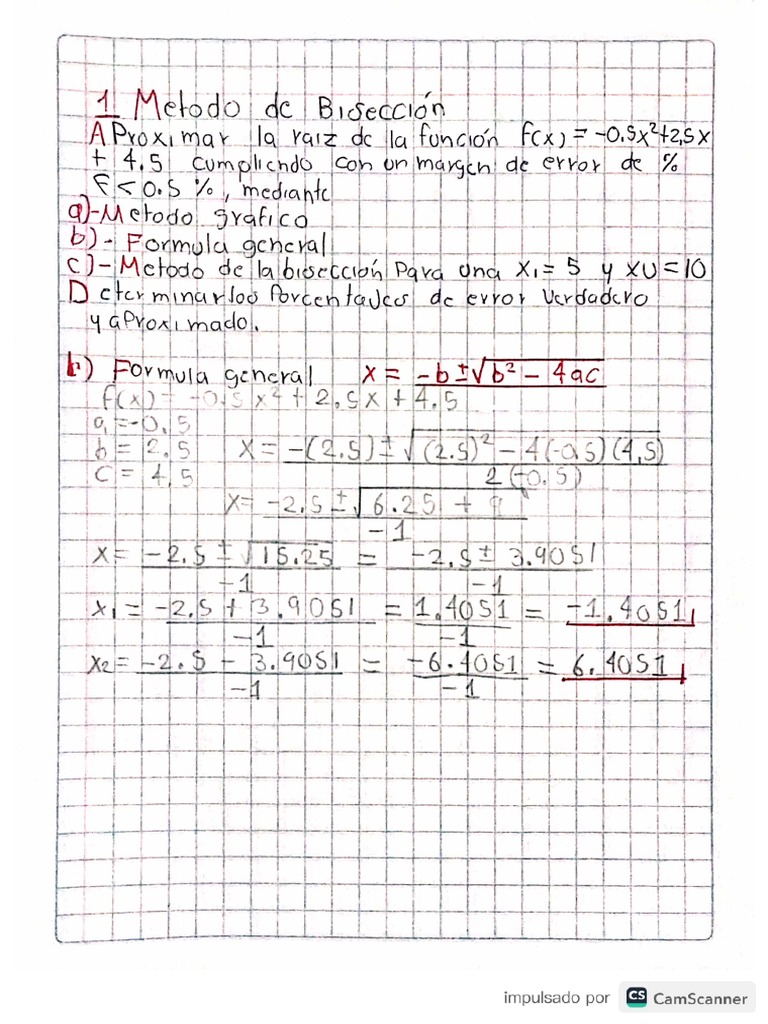 1 Metodo de Bisección
Aproximar la raiz de la función f(x) = -0.5x²+2,5x
+ 4.5 cumpliendo con un margen de error de %
E < 0.5 %, mediante
a)-Metodo grafico
b)- Formula general
c)- Metodo de la bisección Para una x₁ = 5 y xu = 10
Determinarlos Porcentajes de error verdadero
y aproximado.
b) Formula general x = -b ± √b² - 4ac
f(x) = -0.5x² + 2,5x + 4.5
a = -0,5
b = 2.5 x = -(2.5) ± √(2.5)² - 4(-0.5)(4,5)
c = 4,5 2(-0.5)
x = -2,5 ± √6.25 + 9
-1
x = -2.5 ± √15.25 = -2,5 ± 3.9051
-1 -1
x₁ = -2.5 + 3.9051 = 1.4051 = -1.4051
-1 -1
x₂ = -2.5 - 3.9051 = -6.4051 = 6.4051
-1 -1
impulsado por CS CamScanner